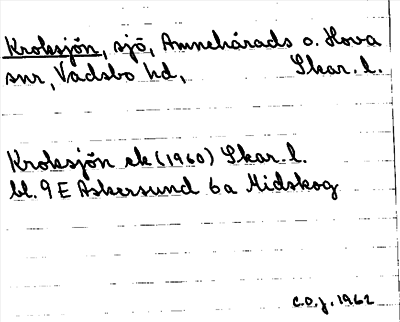 Kroksjön, sjö, Amnehärads o. Hova
snr, Vadsbo hd, Skar. l.
Kroksjön ek (1960) Skar. l.
bl. 9 E Askersund 6a Midskog
C.O.J. 1962